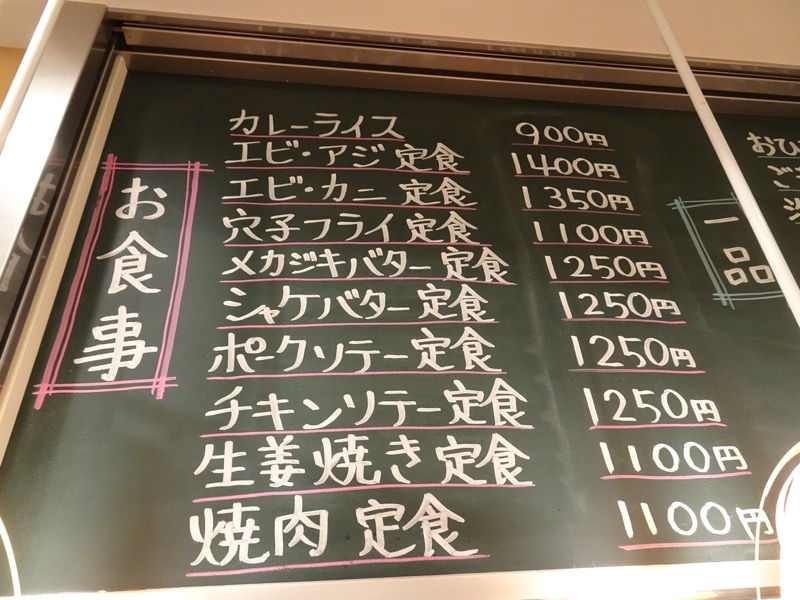 お食事
カレーライス 900円
エビ・アジ 定食 1400円
エビ・カニ 定食 1350円
穴子フライ定食 1100円
メカジキバター定食 1250円
シャケバター定食 1250円
ポークソテー定食 1250円
チキンソテー定食 1250円
生姜焼き定食 1100円
焼肉 定食 1100円
一品
おひ
ご